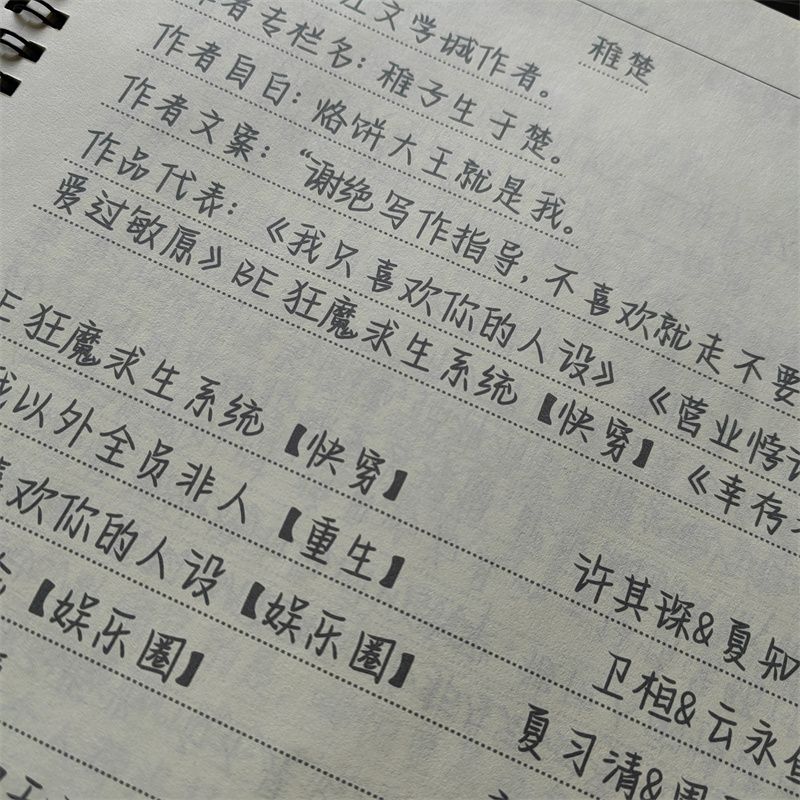 稚楚
江文学城作者。
作者专栏名：稚子生于楚。
作者自白：烙饼大王就是我。
作者文案：“谢绝写作指导，不喜欢就走不要
作品代表：《我只喜欢你的人设》《营业悖论
爱过敏原》BE狂魔求生系统【快穿】《幸存
E狂魔求生系统【快穿】
我以外全员非人【重生】 许其琛&夏知
喜欢你的人设【娱乐圈】 卫桓&云永昼
论【娱乐圈】 夏习清&周